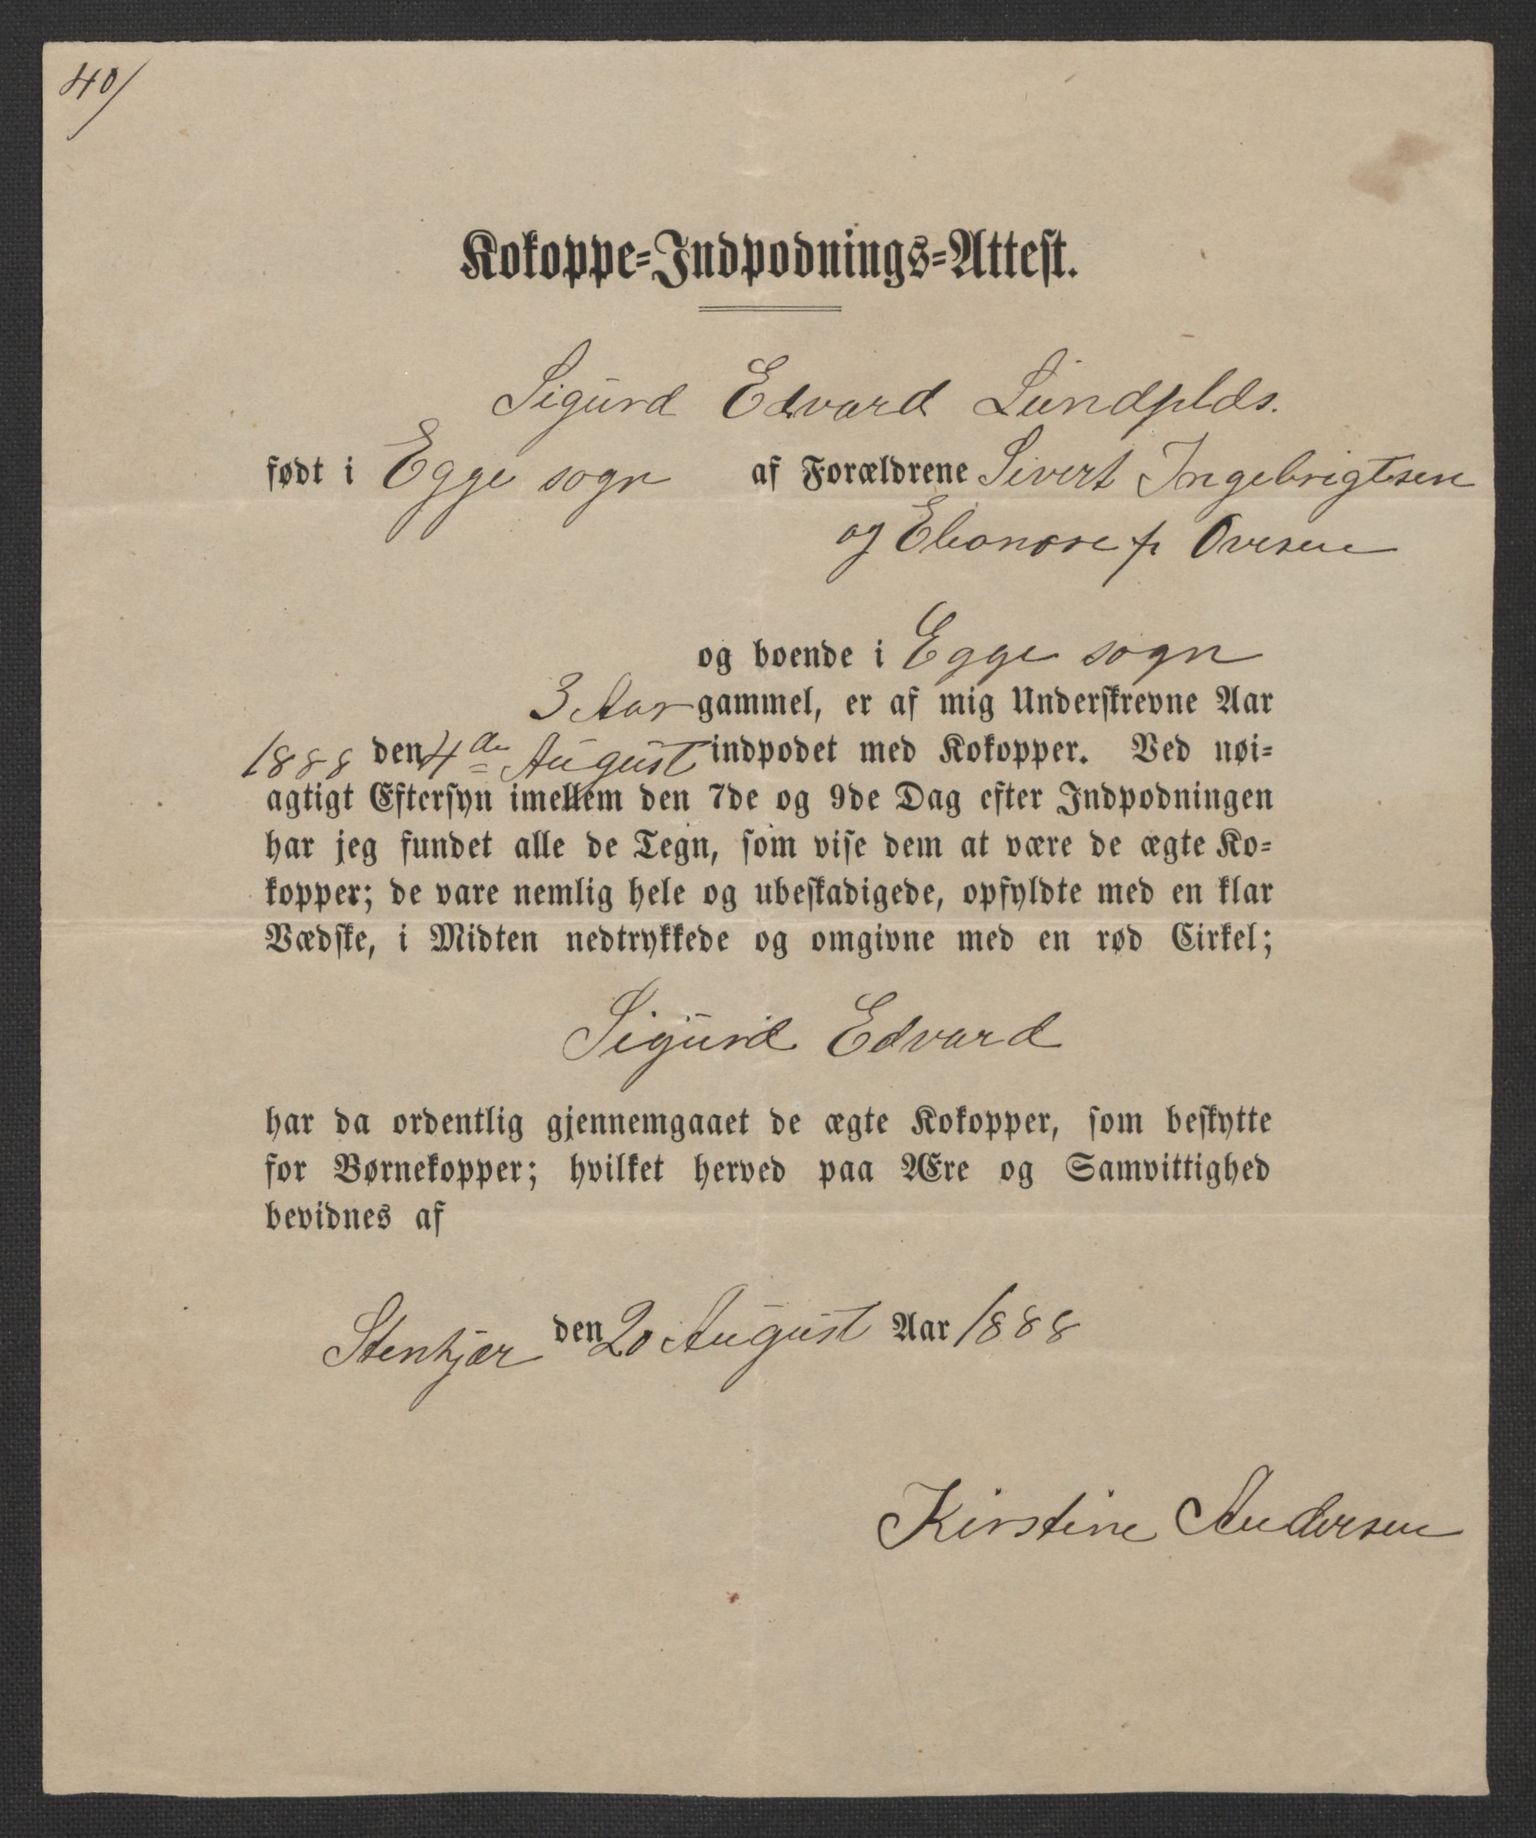 40/
Kokoppe-Indpodnings-Attest.
Sigurd Edvard Lundplds.
født i Egge sogn af Forældrene Sivert Ingebrigtsen
og Elionore f. Ovesen
og boende i Egge sogn
3 Aar gammel, er af mig Underskrevne Aar
1888 den 4de August indpodet med Kokopper. Ved nøi-
agtigt Eftersyn imellem den 7de og 9de Dag efter Indpodningen
har jeg fundet alle de Tegn, som vise dem at være de ægte Ko-
kopper; de vare nemlig hele og ubeskadigede, opfyldte med en klar
Vædske, i Midten nedtrykkede og omgivne med en rød Cirkel;
Sigurd Edvard
har da ordentlig gjennemgaaet de ægte Kokopper, som beskytte
for Børnekopper; hvilket herved paa Ære og Samvittighed
bevidnes af
Stenkjær den 20 August Aar 1888
Kirstine Andersen